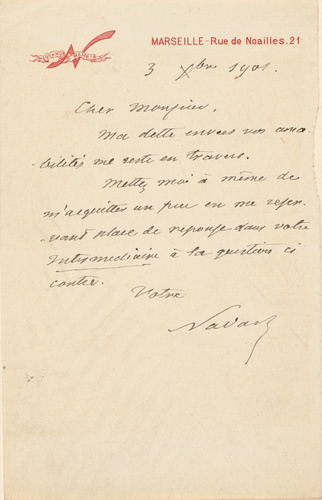 MARSEILLE - Rue de Noailles. 21
3 Xbre 1901.
Cher Monsieur.
Ma dette envers vos ama-
bilités me reste en travers.
Mettez moi à même de
m'acquitter un peu en me reser-
vant place de reponse dans votre
Intermediaire à la question ci
contre.
Votre
Nadar